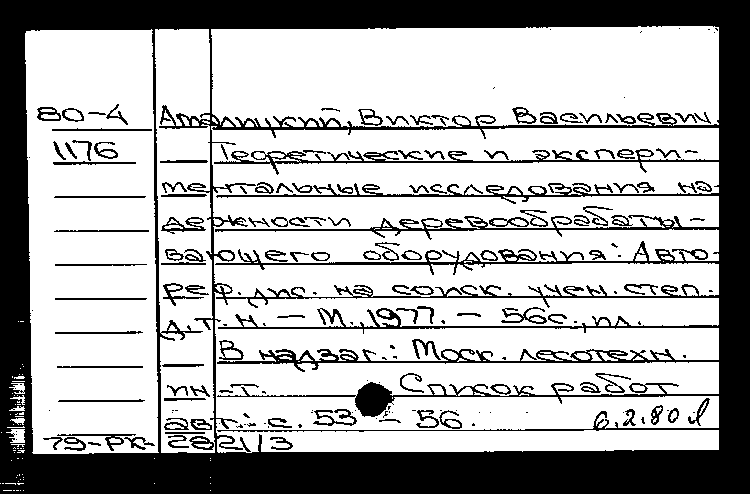 80-4 Амалицкий, Виктор Васильевич.
1176 Теоретические и экспери-
ментальные исследования на-
дежности деревообрабаты-
вающего оборудования: Авто-
реф. дис. на соиск. учен. степ.
д.т.н. - М., 1977. - 56с., ил.
В надзаг.: Моск. лесотехн.
ин-т. Список работ
авт.: с. 53 - 56. 6.2.80
79-РК- 28211/3